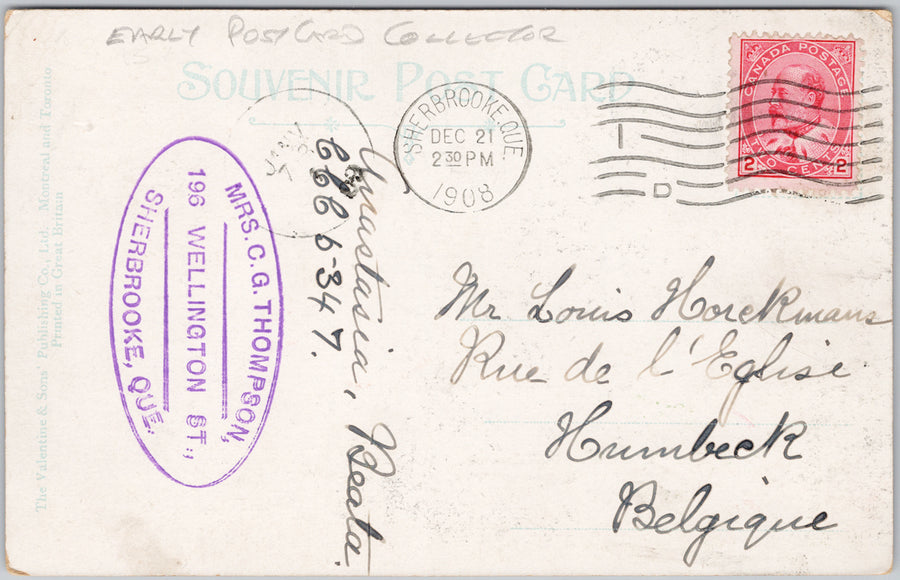 EARLY POSTCARD COLLECTOR
SOUVENIR POST CARD
The Valentine & Sons' Publishing Co., Ltd. Montreal and Toronto
Printed in Great Britain
MRS. C. G. THOMPSON,
196 WELLINGTON ST.,
SHERBROOKE, QUE.
Anastasia, Beata.
6-347.
SHERBROOKE, QUE
DEC 21
2 30 PM
1908
D
CANADA POSTAGE
2 2
TWO CENTS
Mr Louis Horckmans
Rue de l'Eglise
Humbeck
Belgique